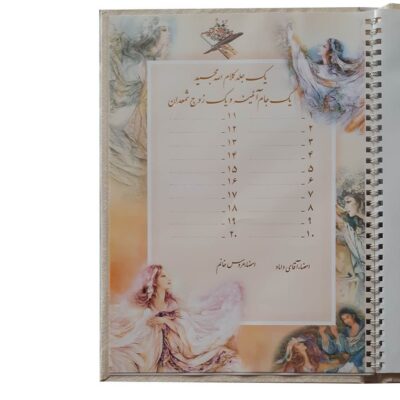 یک جلد کلام الله مجید
یک جام آئینه و یک زوج شمعدان
۱۱ ـ
۲ ـ ۱۲ ـ
۳ ـ ۱۳ ـ
۴ ـ ۱۴ ـ
۵ ـ ۱۵ ـ
۶ ـ ۱۶ ـ
۷ ـ ۱۷ ـ
۸ ـ ۱۸ ـ
۹ ـ ۱۹ ـ
۱۰ ـ ۲۰ ـ
امضاء آقای داماد امضاء عروس خانم